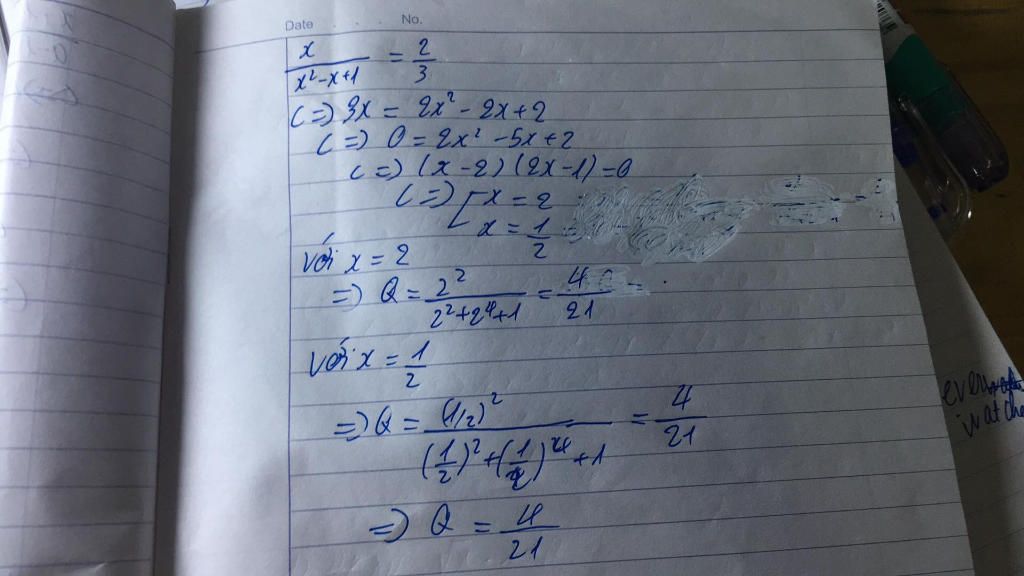 Date No.
x/(x²-x+1) = 2/3
(=) 3x = 2x² - 2x + 2
(=) 0 = 2x² - 5x + 2
(=) (x-2)(2x-1) = 0
(=) [ x = 2
x = 1/2
với x = 2
=) Q = 2²/(2²+2⁴+1) = 4/21
với x = 1/2
=) Q = (1/2)²/((1/2)²+(1/2)⁴+1) = 4/21
=) Q = 4/21